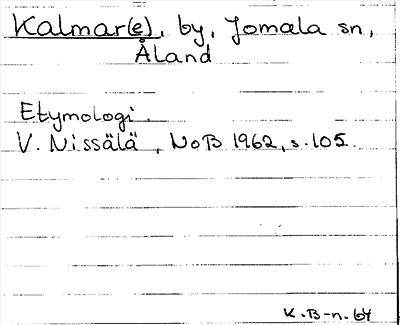 Kalmar(e), by, Jomala sn,
Åland
Etymologi.
V. Nissälä, NoB 1962, s. 105.
K. B-n. 64